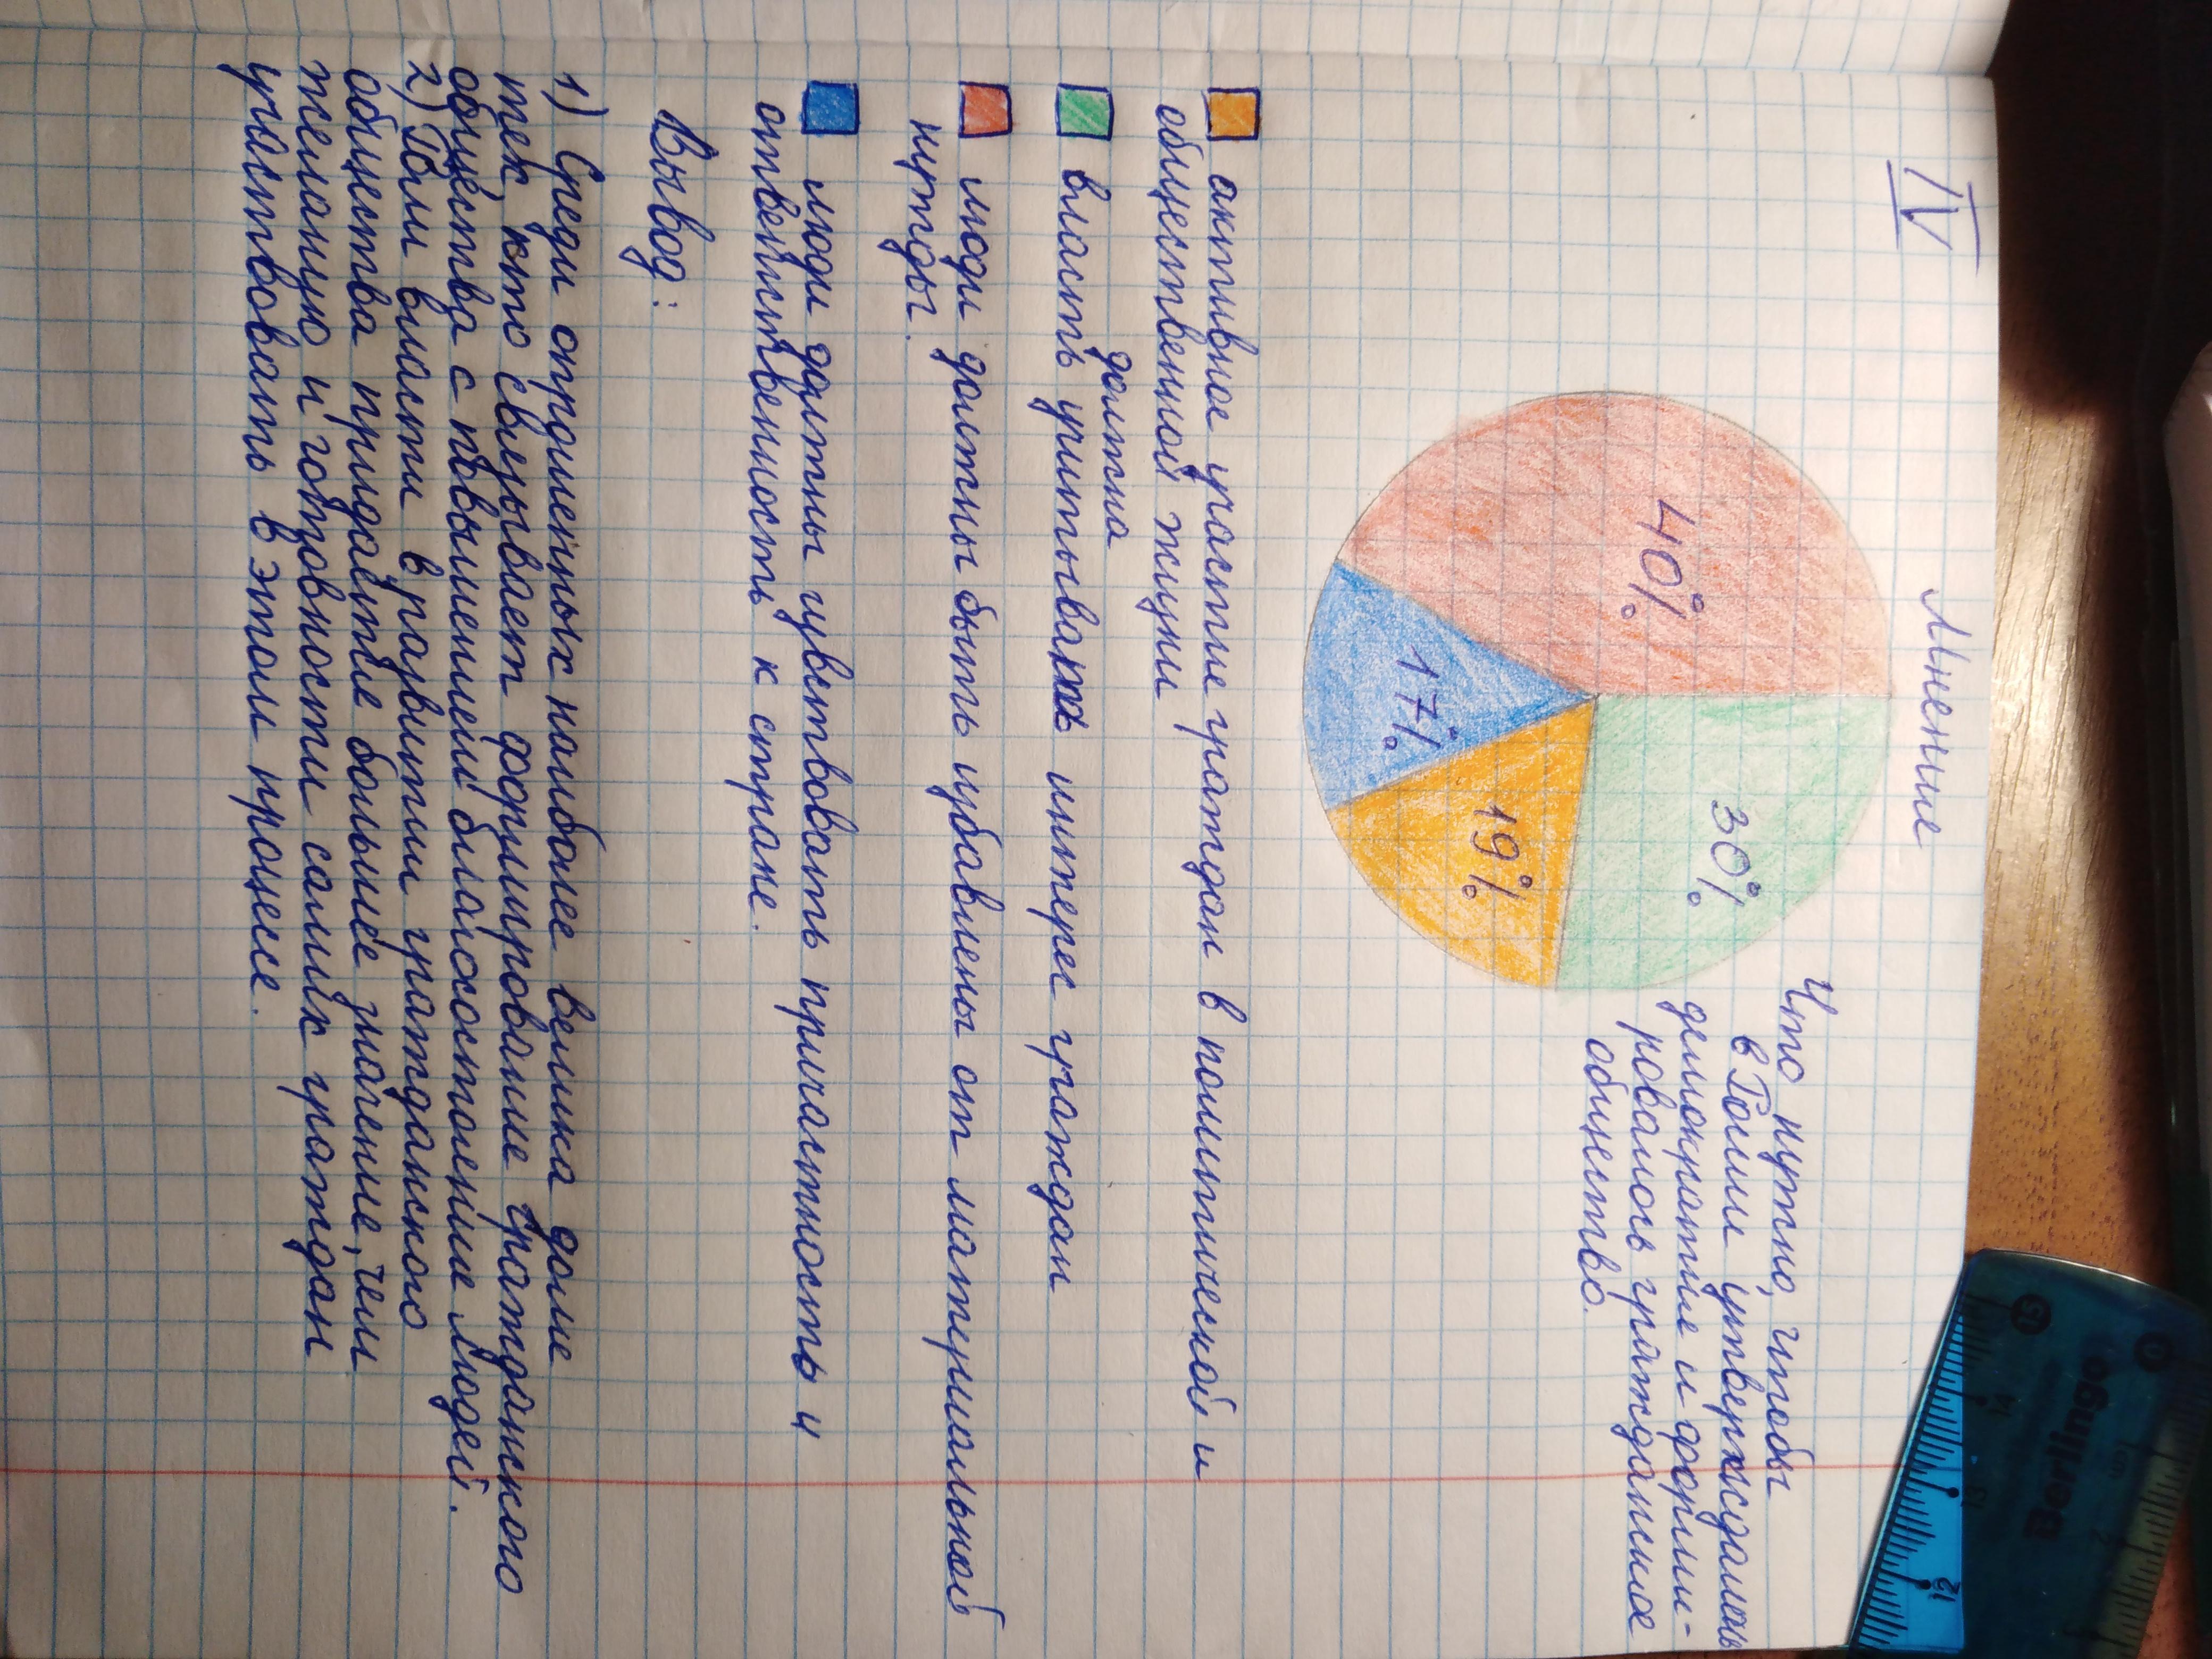 IV
Мнение
Что нужно, чтобы
в Росии утверждалась
демократие и форми-
ровалось гражданское
общество.
40%
30%
17%
19%
активное участие граждан в политической и
общественной жизни
должна
власть учитывать интерес граждан
люди должны быть избавлены от материальной
нужды.
люди должны чувствовать причастность и
ответственность к стране.
Вывод:
1) Среди опрошенных наиболее велика доля
тех, кто связывает формирование гражданского
общества с повышением благосостояние людей.
2) Роли власти в развитии гражданского
общества придаётие больше значение, чем
желанию и готовности самих граждан
участвовать в этом процессе.
Berlingo
15
14
13
12
0
2